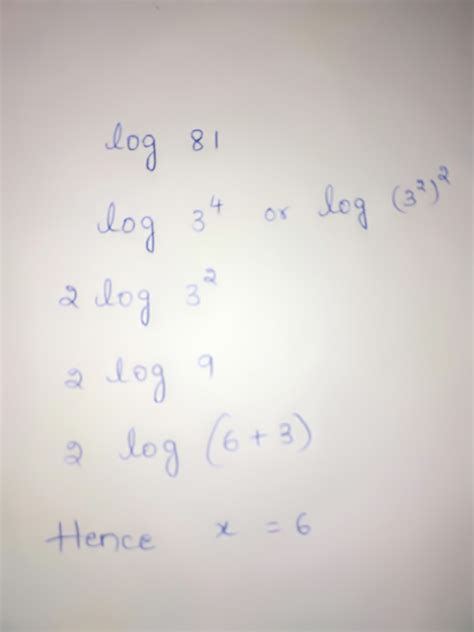 log 81
log 3⁴ or log (3²)²
2 log 3²
2 log 9
2 log (6+3)
Hence x = 6